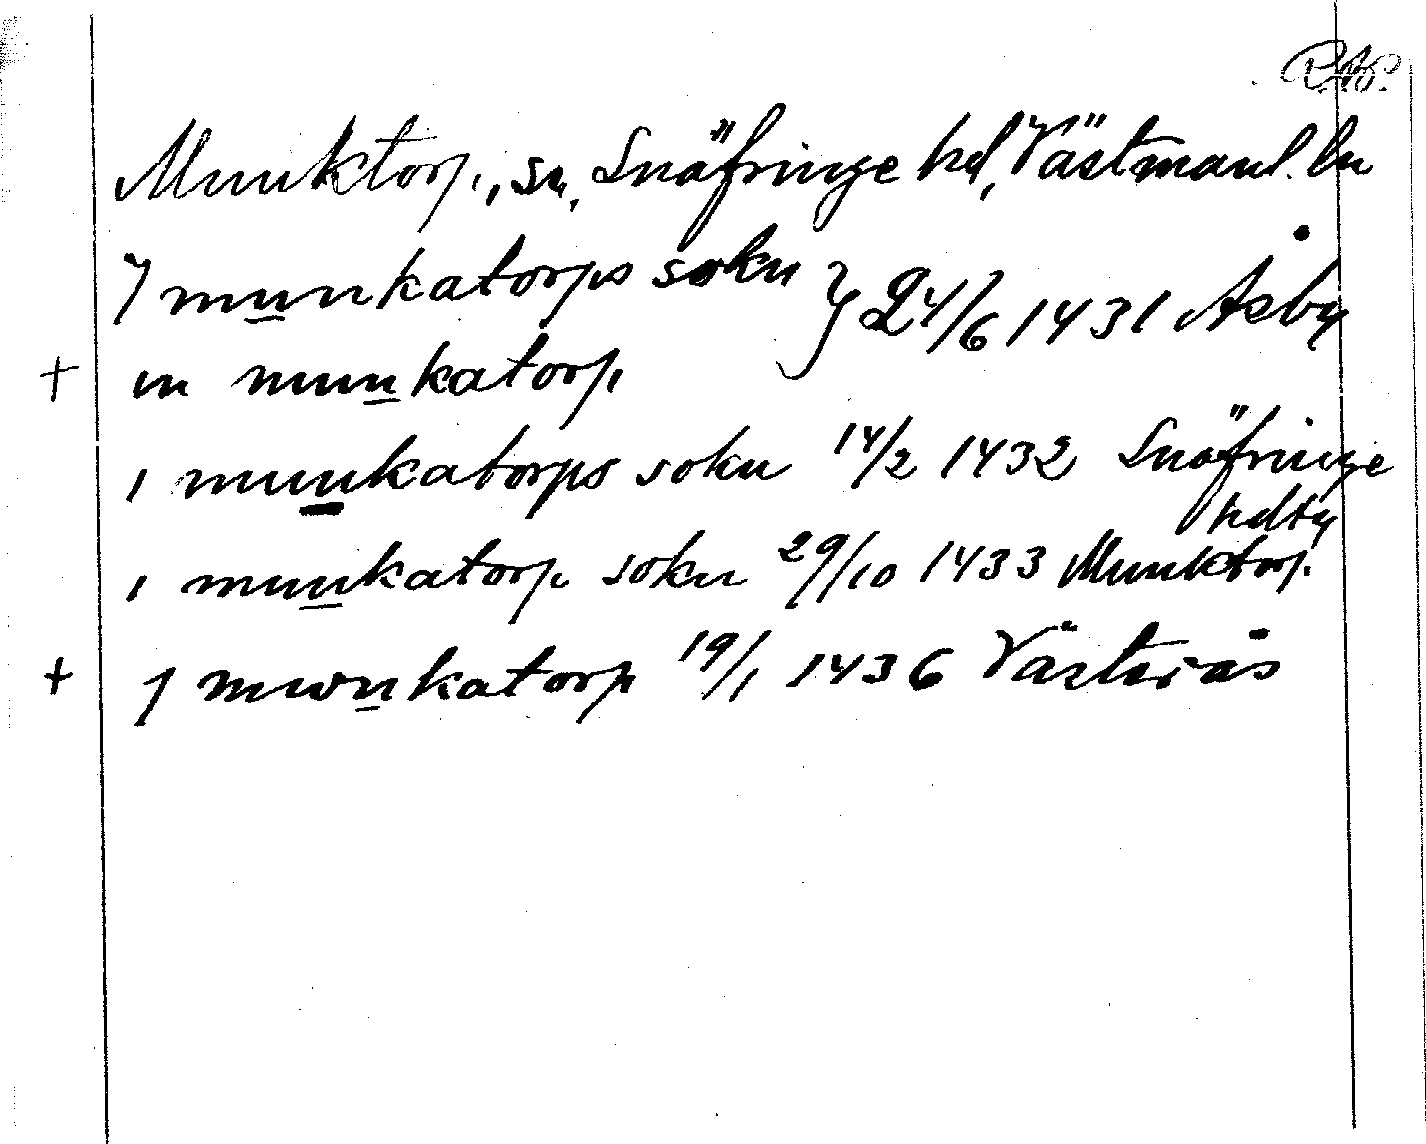 RAP.
Munktorp, sn, Snäfringe hd, Västmanl. ln
J munkatorps sokn } 24/6 1431 Åsby
+ in munkatorp
i munkatorps sokn 14/2 1432 Snäfringe
hdtg
i munkatorp sokn 29/10 1433 Munktorp.
+ J mwnkatorp 19/1 1436 Västerås